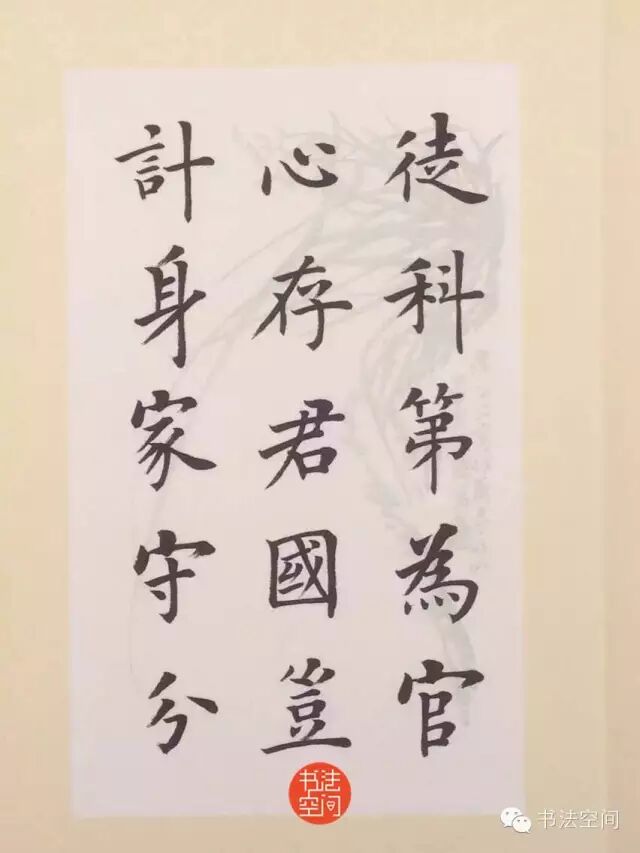 徒科第為官
心存君國豈
計身家守分
书法
空间
书法空间